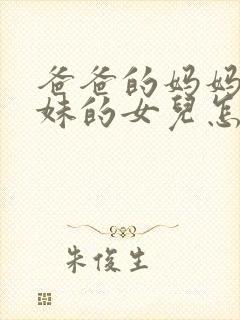 爸爸的妈妈
妹的女兒怎
朱俊生